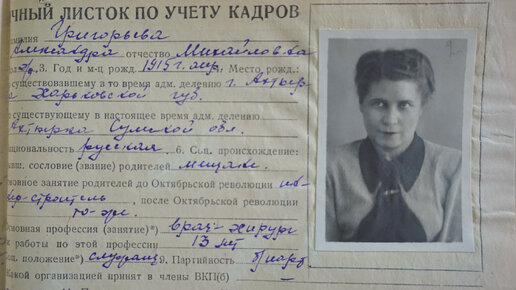 ЧНЫЙ ЛИСТОК ПО УЧЕТУ КАДРОВ
амилия Григорьева
Александра отчество Михайловна
3. Год и м-ц рожд. 1915 г. апр. Место рожд.:
существовавшему в то время адм. делению г. Ахтыр
ка Харьковской губ.
существующему в настоящее время адм. делению
Ахтырка Сумской обл.
циональность русская 6. Соц. происхождение:
вш. сословие (звание) родителей мещане.
новное занятие родителей до Октябрьской революции
строитель, после Октябрьской революции
то-же.
сновная профессия (занятие*) врач-хирург
ж работы по этой профессии 13 лет
ц. положение*) служащ 9. Партийность б/парт
акой организацией принят в члены ВКП(б) —